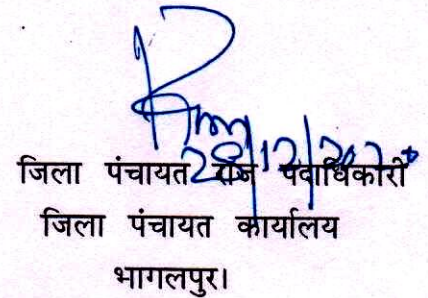 28/12/2020
जिला पंचायत राज पदाधिकारी
जिला पंचायत कार्यालय
भागलपुर।